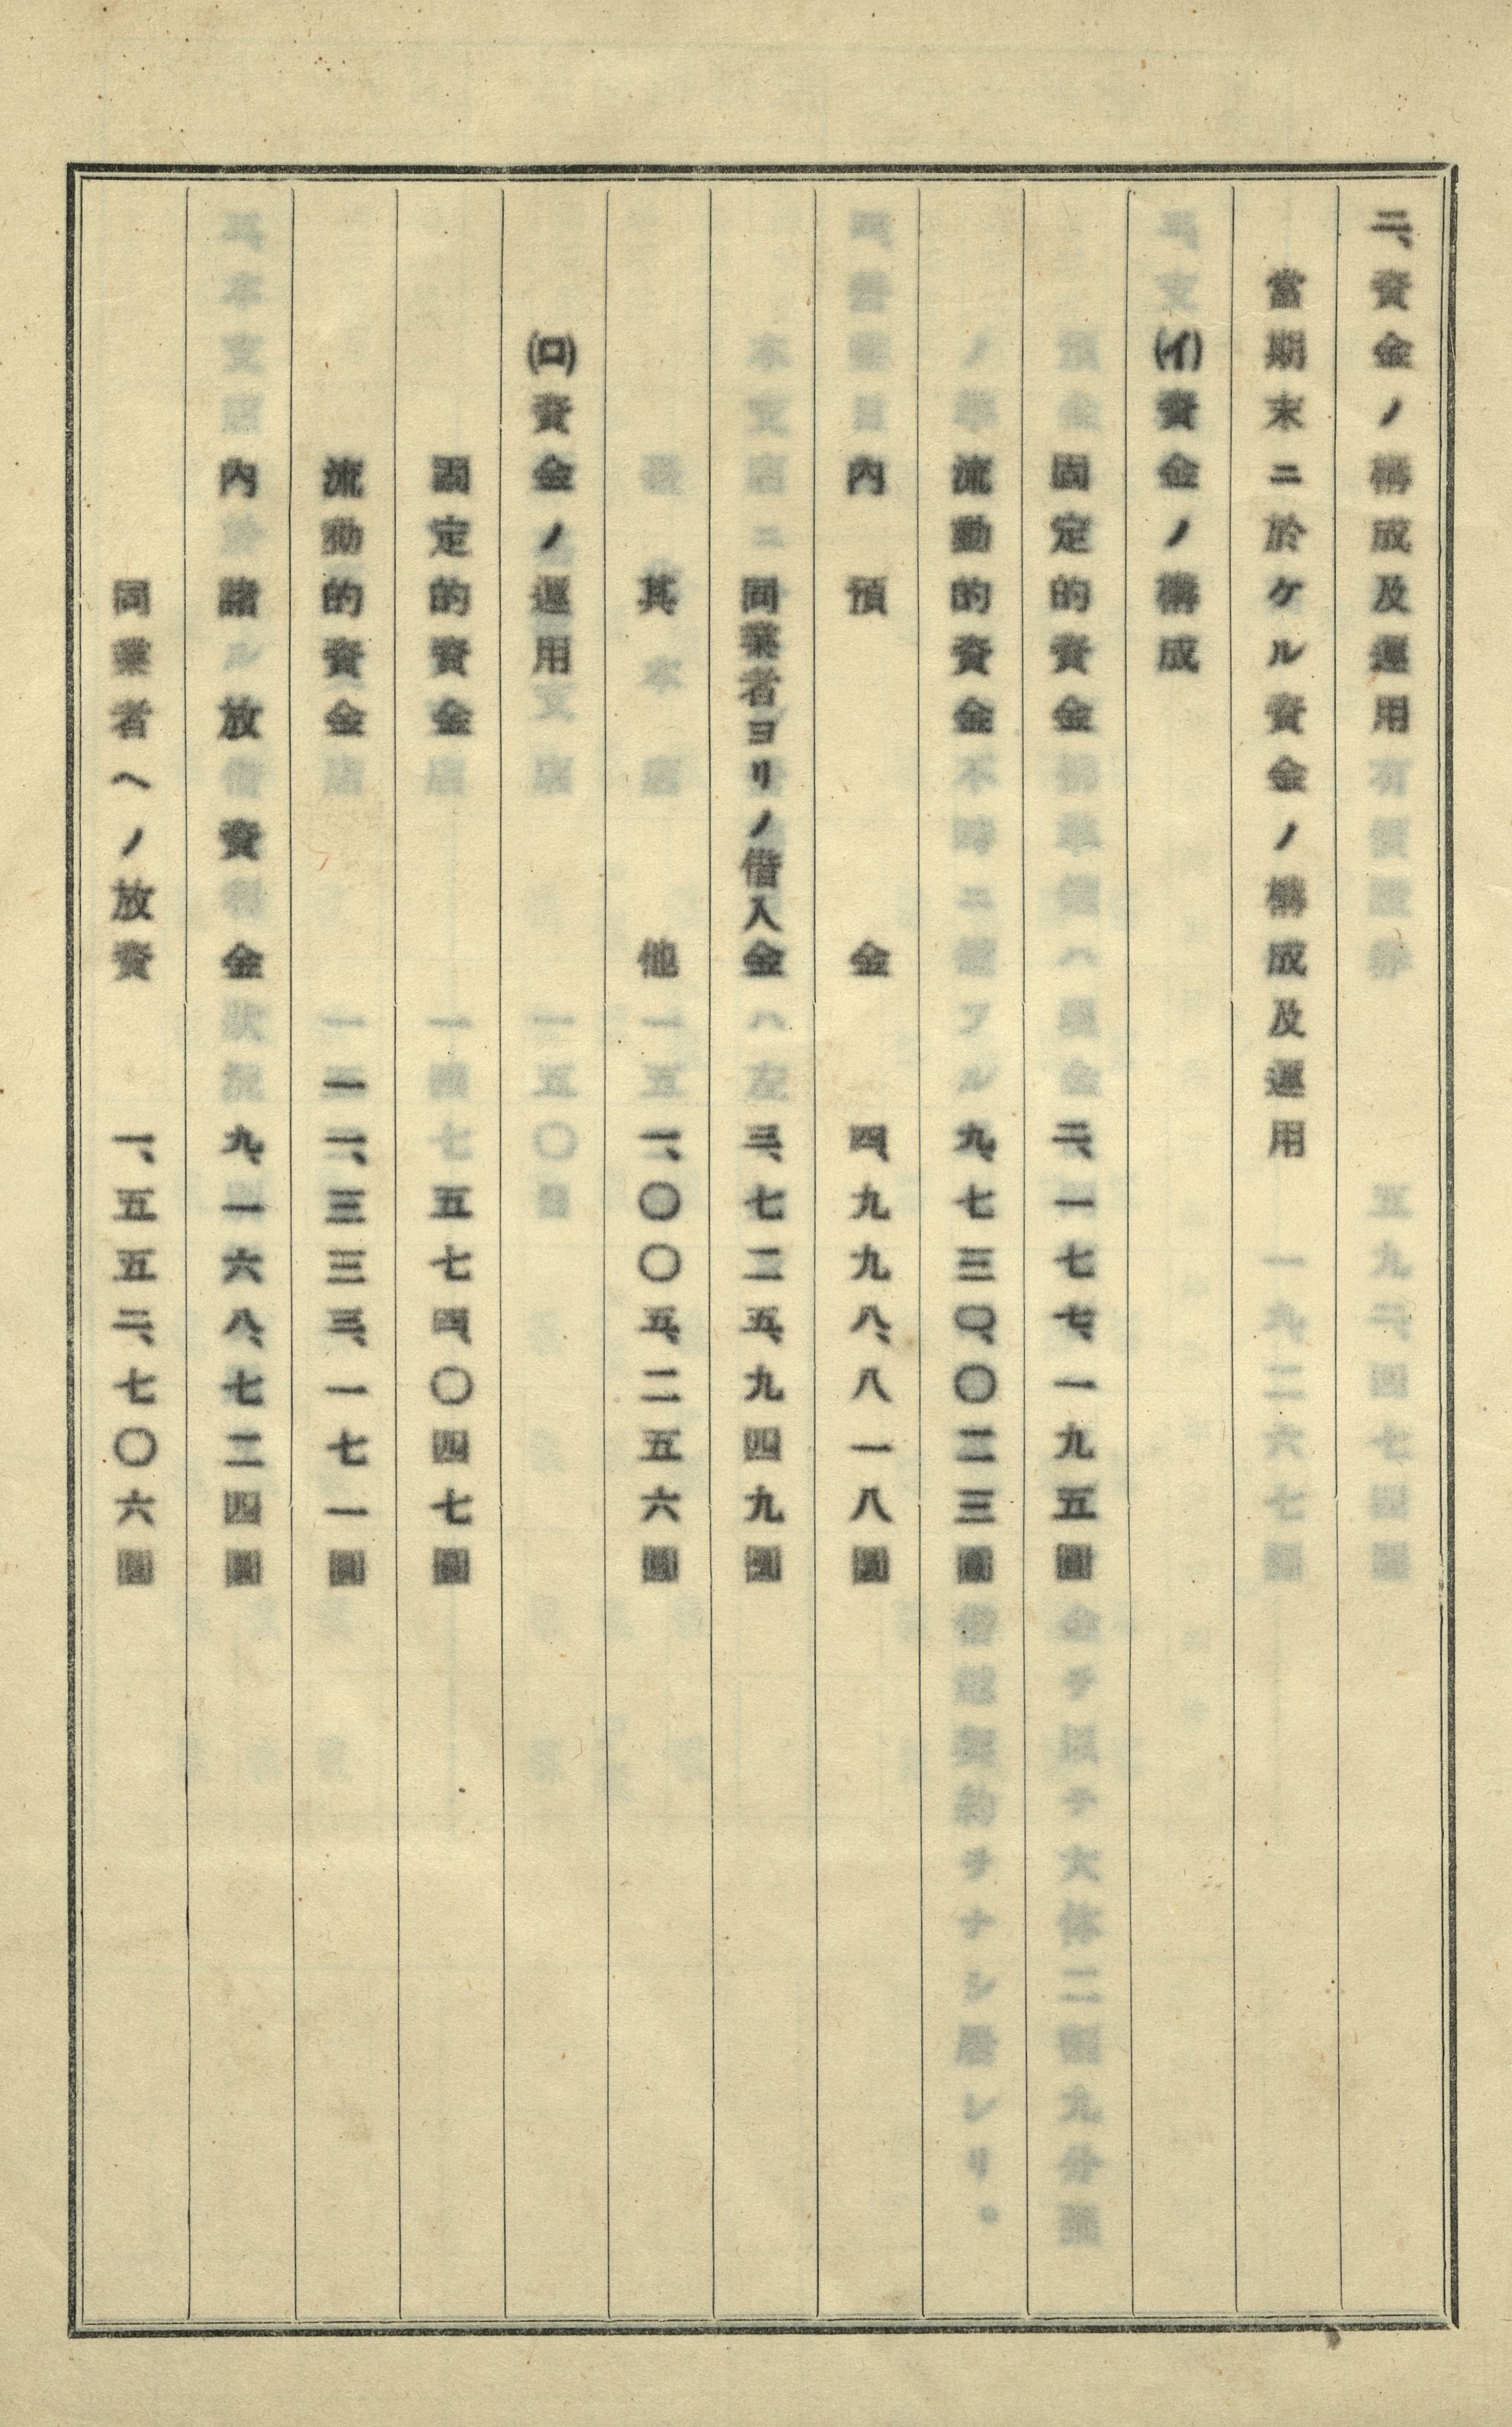 二、資金ノ構成及運用
當期末ニ於ケル資金ノ構成及運用
(イ)資金ノ構成
固定的資金 二、一七七、一九五圓
流動的資金 九、七三〇、〇二三圓
內 預金 四、九九八、八一八圓
同業者ヨリノ借入金 三、七二五、九四九圓
其他 一、〇〇五、二五六圓
(ロ)資金ノ運用
固定的資金 五七四、〇四七圓
流動的資金 一一、三三三、一七一圓
內 諸放資金 九、一六八、七二四圓
同業者ヘノ放資 一、五五二、七〇六圓